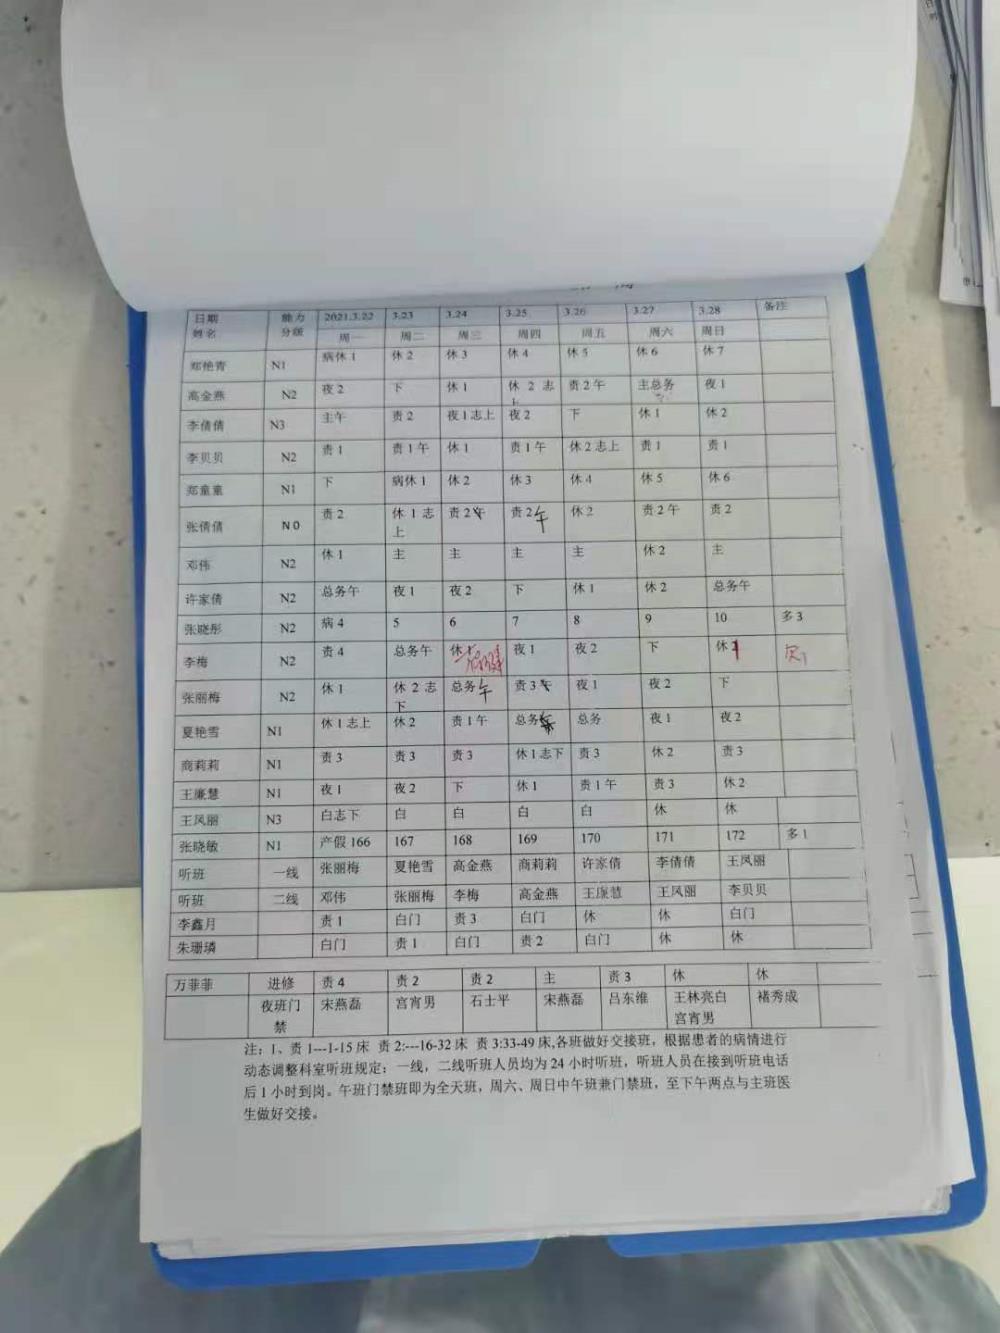 日期 能力 2021.3.22 3.23 3.24 3.25 3.26 3.27 3.28 备注
姓名 分级 周一 周二 周三 周四 周五 周六 周日
郑艳青 N1 病休1 休2 休3 休4 休5 休6 休7
高金燕 N2 夜2 下 休1 休2志上 责2午 主总务 夜1
李倩倩 N3 主午 责2 夜1志上 夜2 下 休1 休2
李贝贝 N2 责1 责1午 休1 责1午 休2志上 责1 责1
郑童童 N1 下 病休1 休2 休3 休4 休5 休6
张倩倩 N0 责2 休1志上 责2午 责2午 休2 责2午 责2
邓伟 N2 休1 主 主 主 主 休2 主
许家倩 N2 总务午 夜1 夜2 下 休1 休2 总务午
张晓彤 N2 病4 5 6 7 8 9 10 多3
李梅 N2 责4 总务午 休1 夜1 夜2 下 休1 欠1
张丽梅 N2 休1 休2志下 总务午 责3 夜1 夜2 下
夏艳雪 N1 休1志上 休2 责1午 总务 总务 夜1 夜2
商莉莉 N1 责3 责3 责3 休1志下 责3 休2 责3
王廉慧 N1 夜1 夜2 下 休1 责1午 责3 休2
王凤丽 N3 白志下 白 白 白 白 休 休
张晓敏 N1 产假166 167 168 169 170 171 172 多1
听班 一线 张丽梅 夏艳雪 高金燕 商莉莉 许家倩 李倩倩 王凤丽
听班 二线 邓伟 张丽梅 李梅 高金燕 王廉慧 王凤丽 李贝贝
李鑫月 责1 白门 责3 白门 休 休 白门
朱珊璘 白门 责1 白门 责2 白门 休 休
万菲菲 进修 责4 责2 责2 主 责3 休 休
夜班门 宋燕磊 宫宵男 石士平 宋燕磊 吕东维 王林亮白 褚秀成
禁 宫宵男
注：1、责1---1-15床 责2:---16-32床 责3:33-49床,各班做好交接班，根据患者的病情进行
动态调整科室听班规定：一线，二线听班人员均为24小时听班，听班人员在接到听班电话
后1小时到岗。午班门禁班即为全天班，周六、周日中午班兼门禁班，至下午两点与主班医
生做好交接。